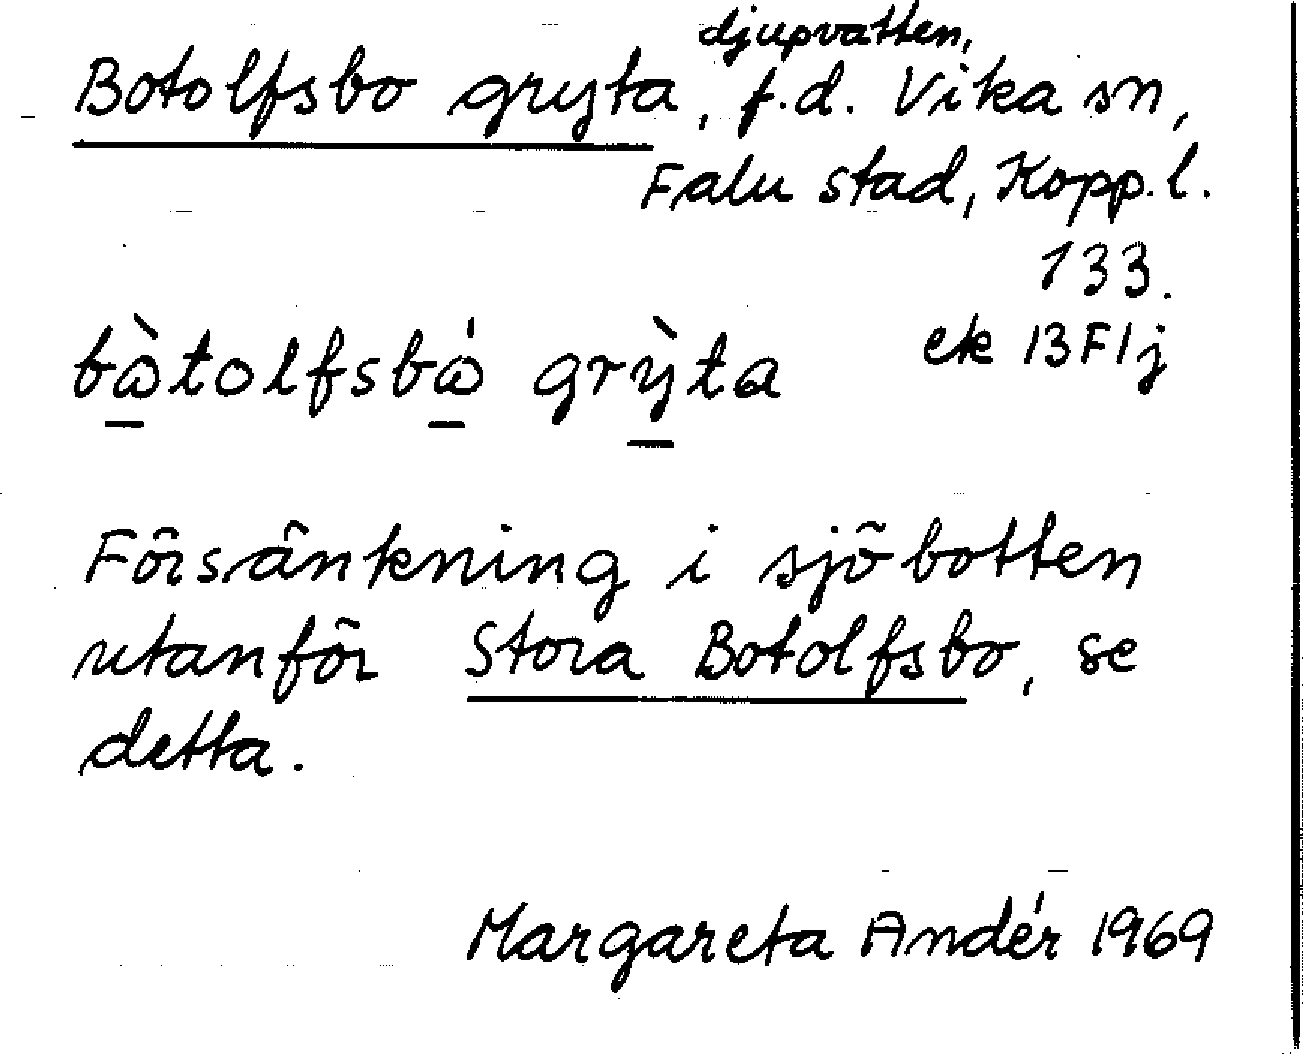 djupvatten,
Botolfsbo gryta, f.d. Vika sn,
Falu stad, Kopp.l.
133.
bὼtolfsbώ grỳta ek 13F1j
Försänkning i sjöbotten
utanför Stora Botolfsbo, se
detta.
Margareta Andér 1969